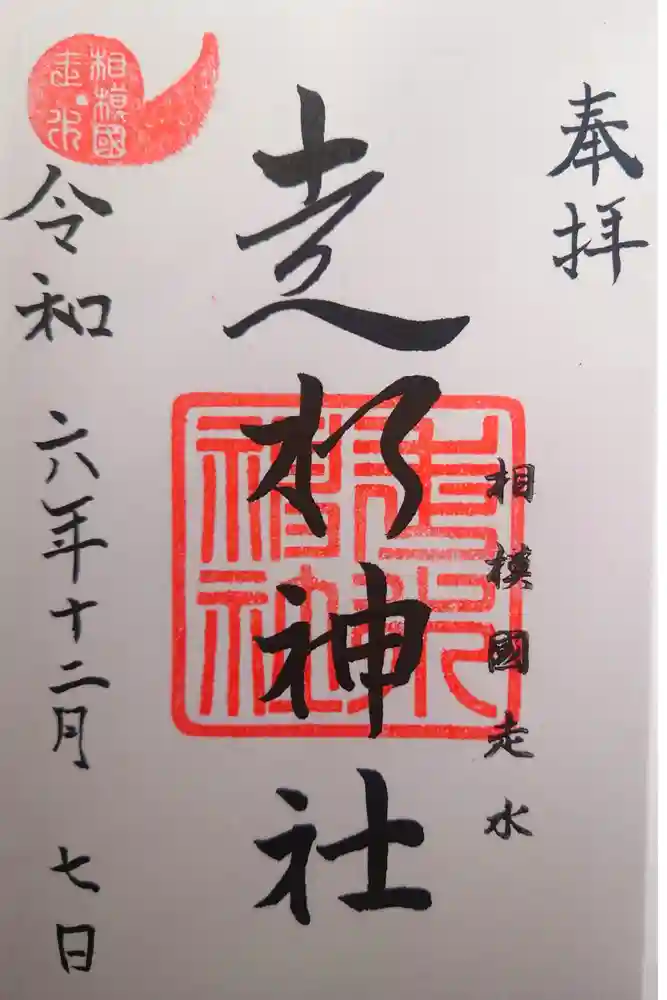 奉拝
相模國走水
走水神社
走水神社
令和六年十二月七日
相模國
走水